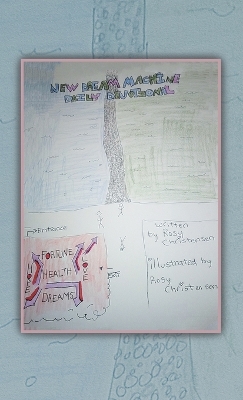 NEW DREAM MACHINE
DAILY DEVOTIONAL
Entrance
FORTUNE
HEALTH
LOVE
DREAMS
written
by Rosy
Christensen
illustrated by
Rosy
Christensen